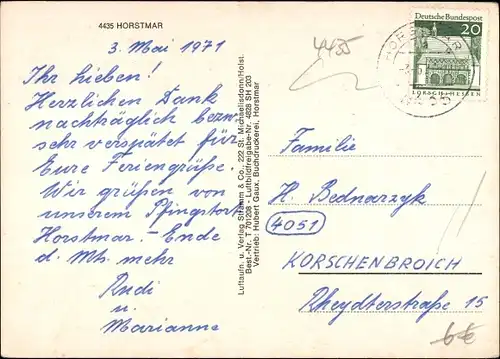 4435 HORSTMAR
3. Mai 1971
Ihr lieben!
Herzlichen Dank
nachträglich bezw.
sehr verspätet für
Eure Feriengrüße.
Wir grüßen von
unserem Pfingstort
Horstmar. Ende
d. Mts. mehr
Rudi
u.
Marianne
Luftaufn. u. Verlag & Co., 222 St. Michaelisdonn/Holst.
Best.-Nr. T 701208 Luftbildfreigabe-Nr. 4828 SH 203
Vertrieb: Hubert Gaux, Buchdruckerei, Horstmar
4435
Deutsche Bundespost
20
LORSCH/HESSEN
HORSTMAR
Familie
H. Bednarzyk
4051
KORSCHENBROICH
Rheydterstraße 15
6€